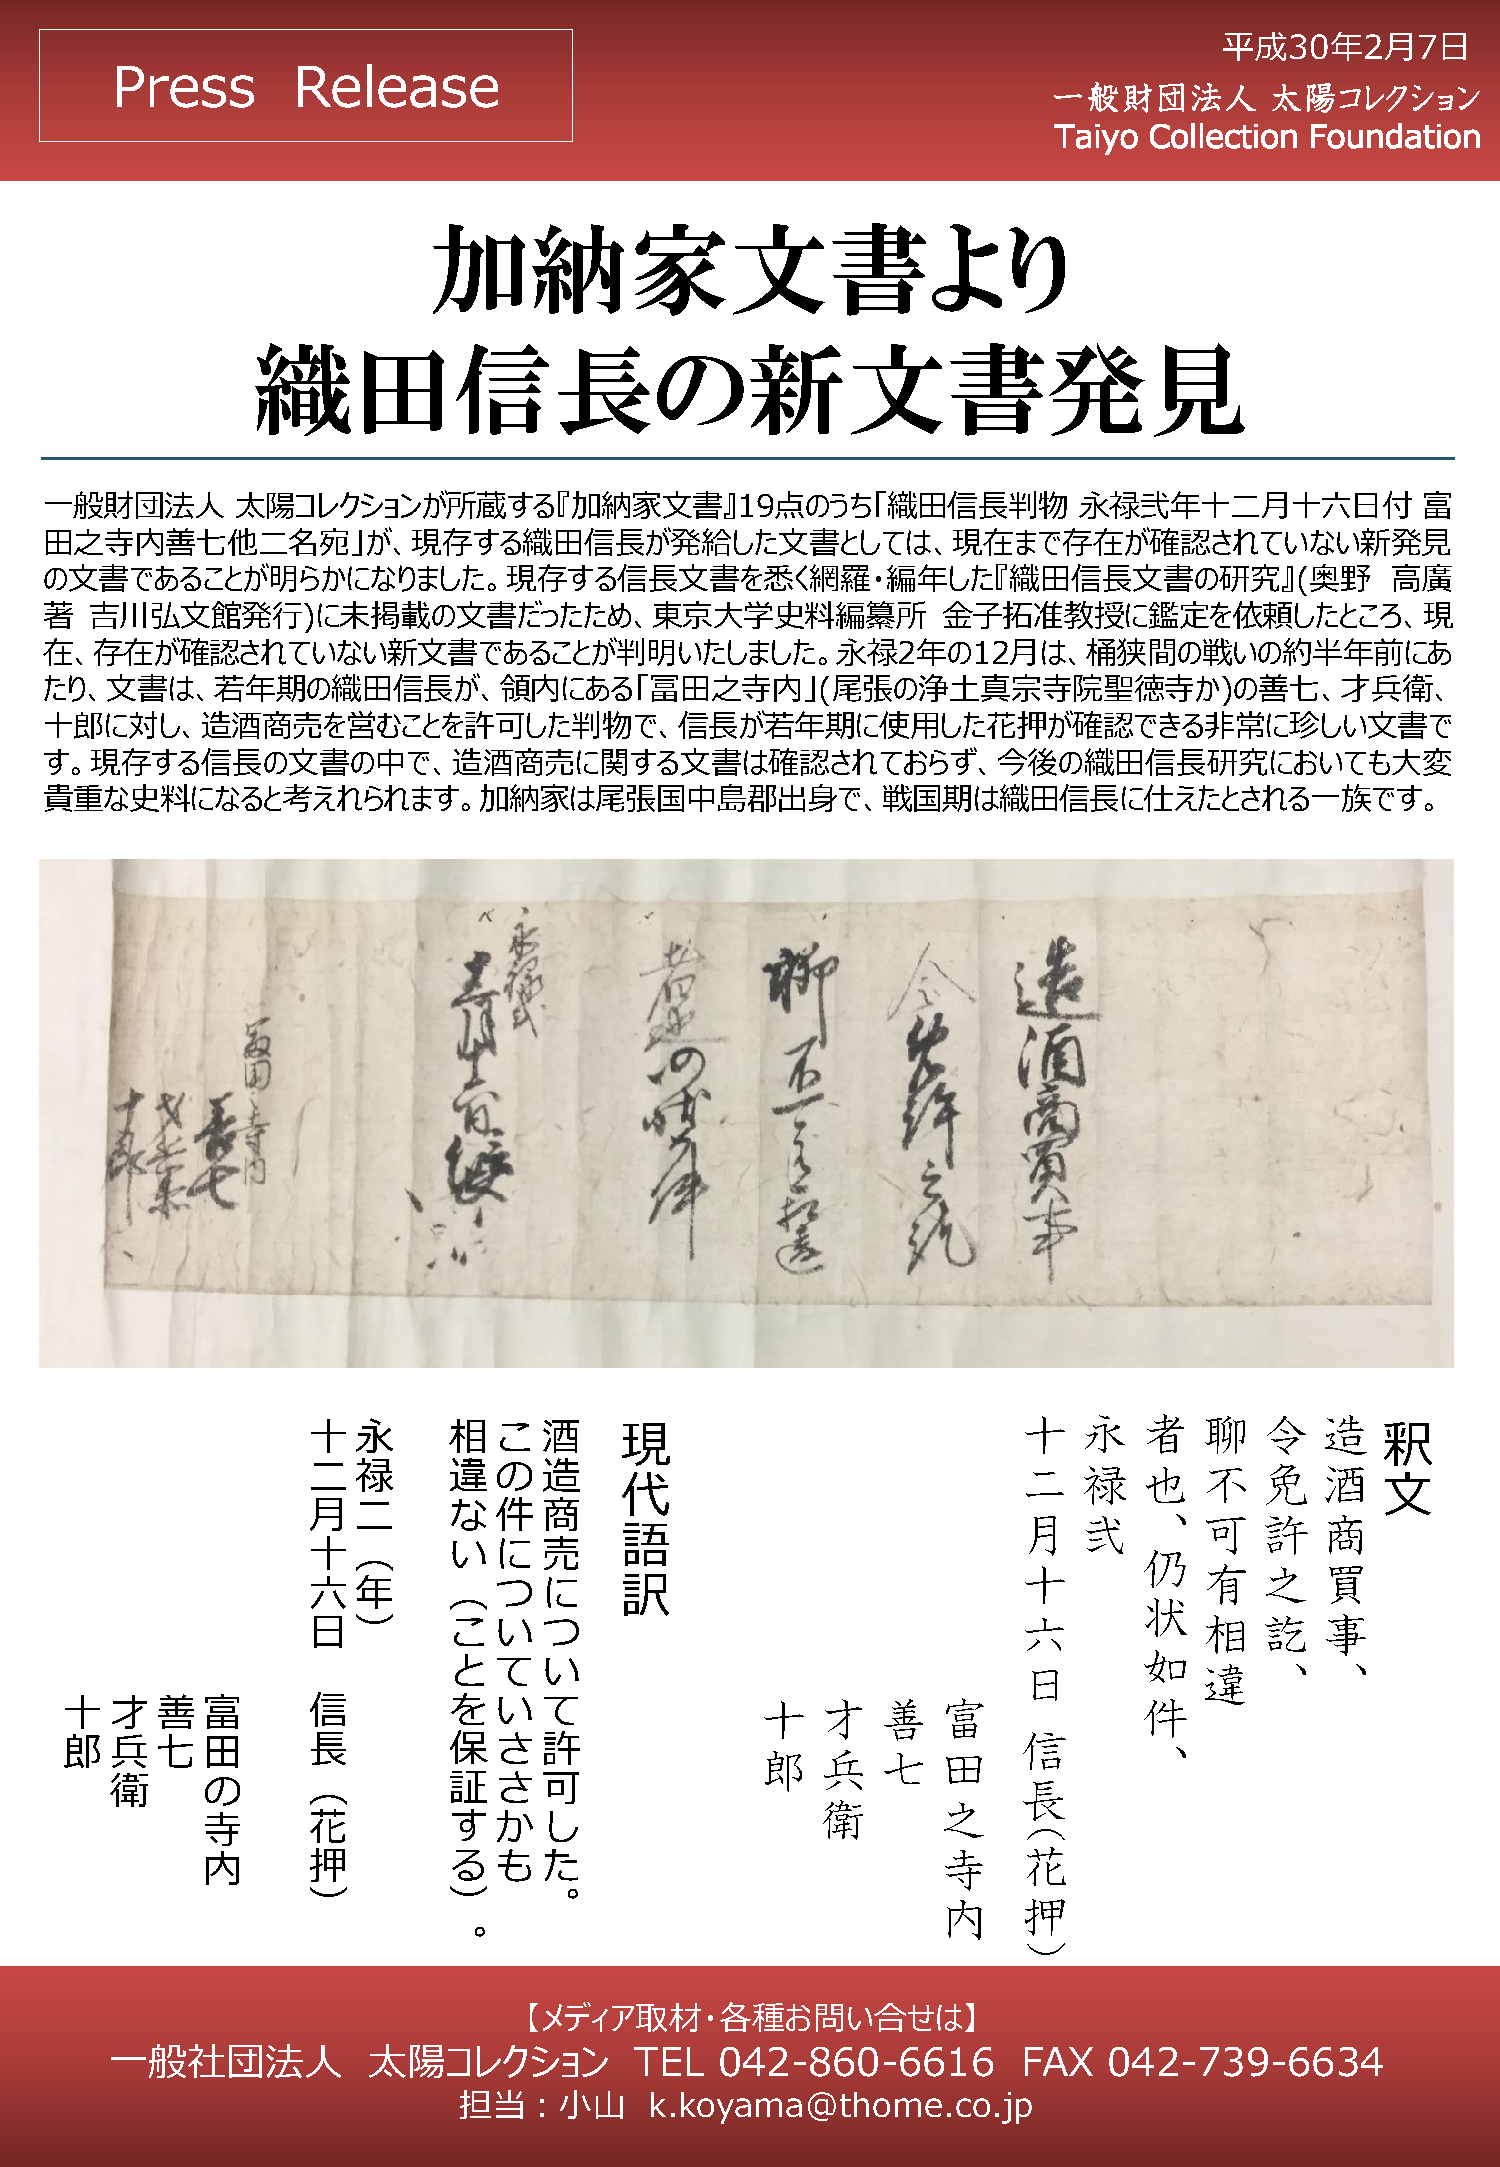 Press Release
平成30年2月7日
一般財団法人 太陽コレクション
Taiyo Collection Foundation
加納家文書より
織田信長の新文書発見
一般財団法人 太陽コレクションが所蔵する『加納家文書』19点のうち「織田信長判物 永禄弐年十二月十六日付 富
田之寺内善七他二名宛」が、現存する織田信長が発給した文書としては、現在まで存在が確認されていない新発見
の文書であることが明らかになりました。現存する信長文書を悉く網羅・編年した『織田信長文書の研究』(奥野 高廣
著 吉川弘文館発行)に未掲載の文書だったため、東京大学史料編纂所 金子拓准教授に鑑定を依頼したところ、現
在、存在が確認されていない新文書であることが判明いたしました。永禄2年の12月は、桶狭間の戦いの約半年前にあ
たり、文書は、若年期の織田信長が、領内にある「冨田之寺内」(尾張の浄土真宗寺院聖徳寺か)の善七、才兵衛、
十郎に対し、造酒商売を営むことを許可した判物で、信長が若年期に使用した花押が確認できる非常に珍しい文書で
す。現存する信長の文書の中で、造酒商売に関する文書は確認されておらず、今後の織田信長研究においても大変
貴重な史料になると考えれられます。加納家は尾張国中島郡出身で、戦国期は織田信長に仕えたとされる一族です。
造酒商買事
令免許之訖
聊不可有相違
者也仍状如件
永禄弐
十二月十六日信長
富田之寺内
善七
才兵衛
十郎
釈文
造酒商買事、
令免許之訖、
聊不可有相違
者也、仍状如件、
永禄弐
十二月十六日 信長(花押)
富田之寺内
善七
才兵衛
十郎
現代語訳
酒造商売について許可した。
この件についていささかも
相違ない(ことを保証する)。
永禄二(年)
十二月十六日 信長(花押)
富田の寺内
善七
才兵衛
十郎
【メディア取材・各種お問い合せは】
一般社団法人 太陽コレクション TEL 042-860-6616 FAX 042-739-6634
担当：小山 k.koyama@thome.co.jp